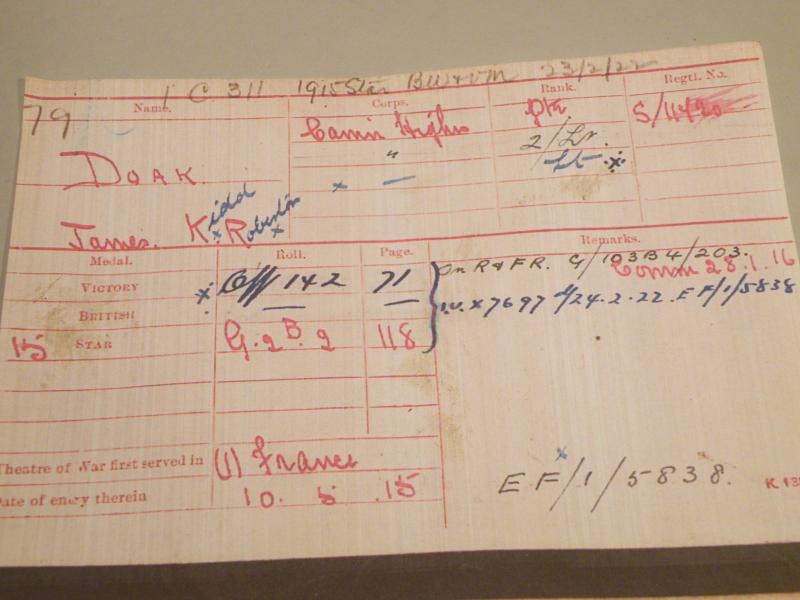 1 C 311 1915 Star BW&VM 23/2/22
79 Name. Corps. Rank. Regtl. No.
Cam'n Highrs Pte S/11420
DOAK. " 2/Lt.
x — Lt x
James. Kidd Robertson
Medal. Roll. Page. Remarks.
VICTORY Off 142 71 On R & FR. G/103B4/203.
Comm 28.1.16
BRITISH — — I.V. X7697 d/24.2.22. EF/1/5838
15 STAR G.2.B.2 118
Theatre of War first served in (1) France EF/1/5838.
Date of entry therein 10. 5. 15